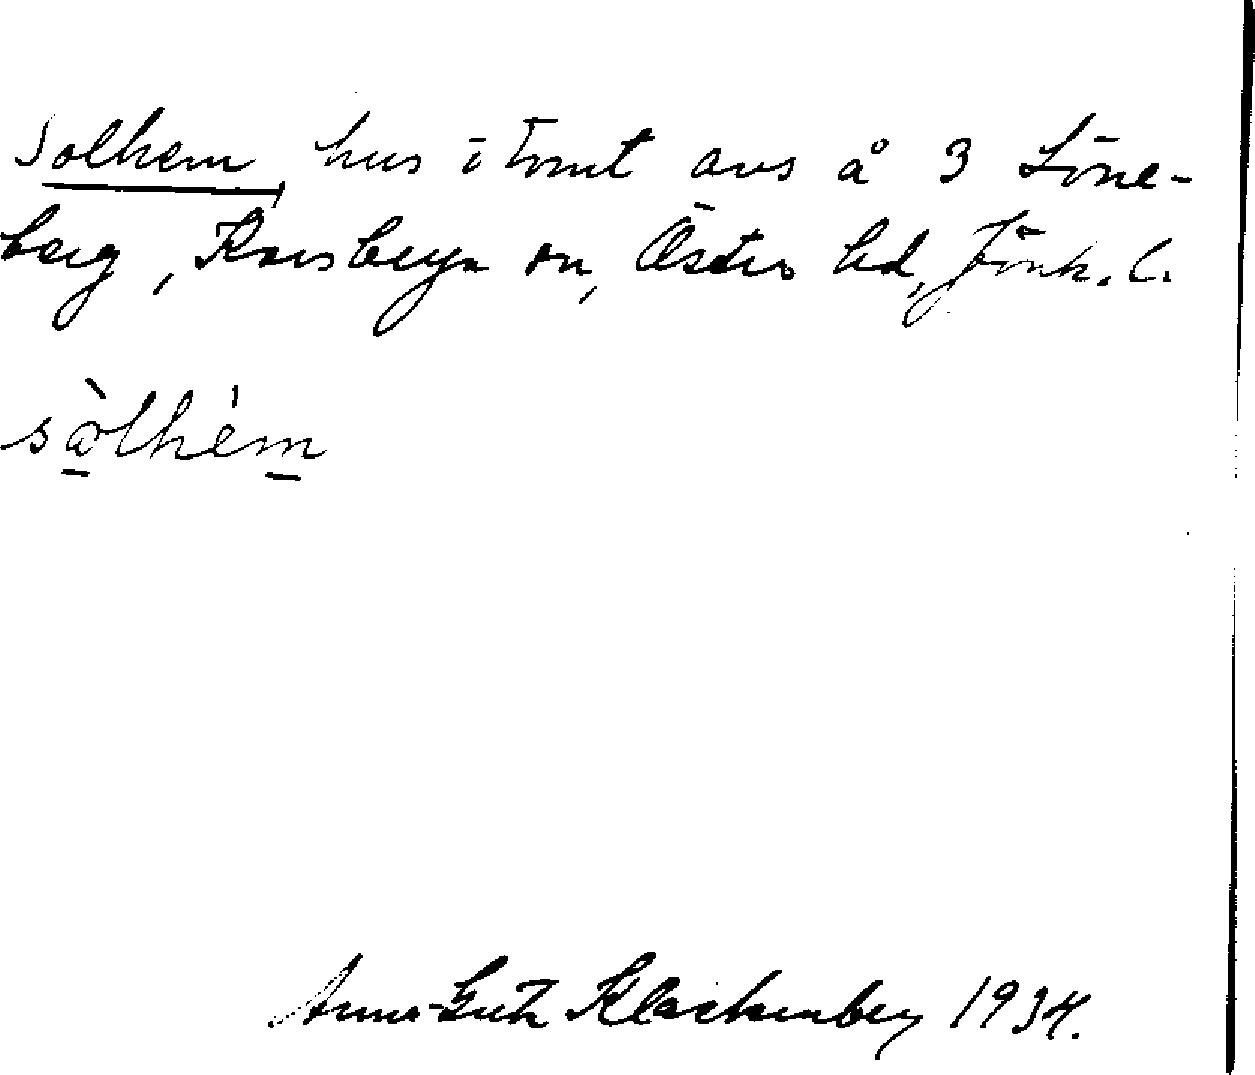 Solhem, hus i tomt avs å 3 Löne-
berg, Korsberga sn, Östra hd, Jönk. l.
sòlhèm
Anna-Greta Klackenberg 1934.